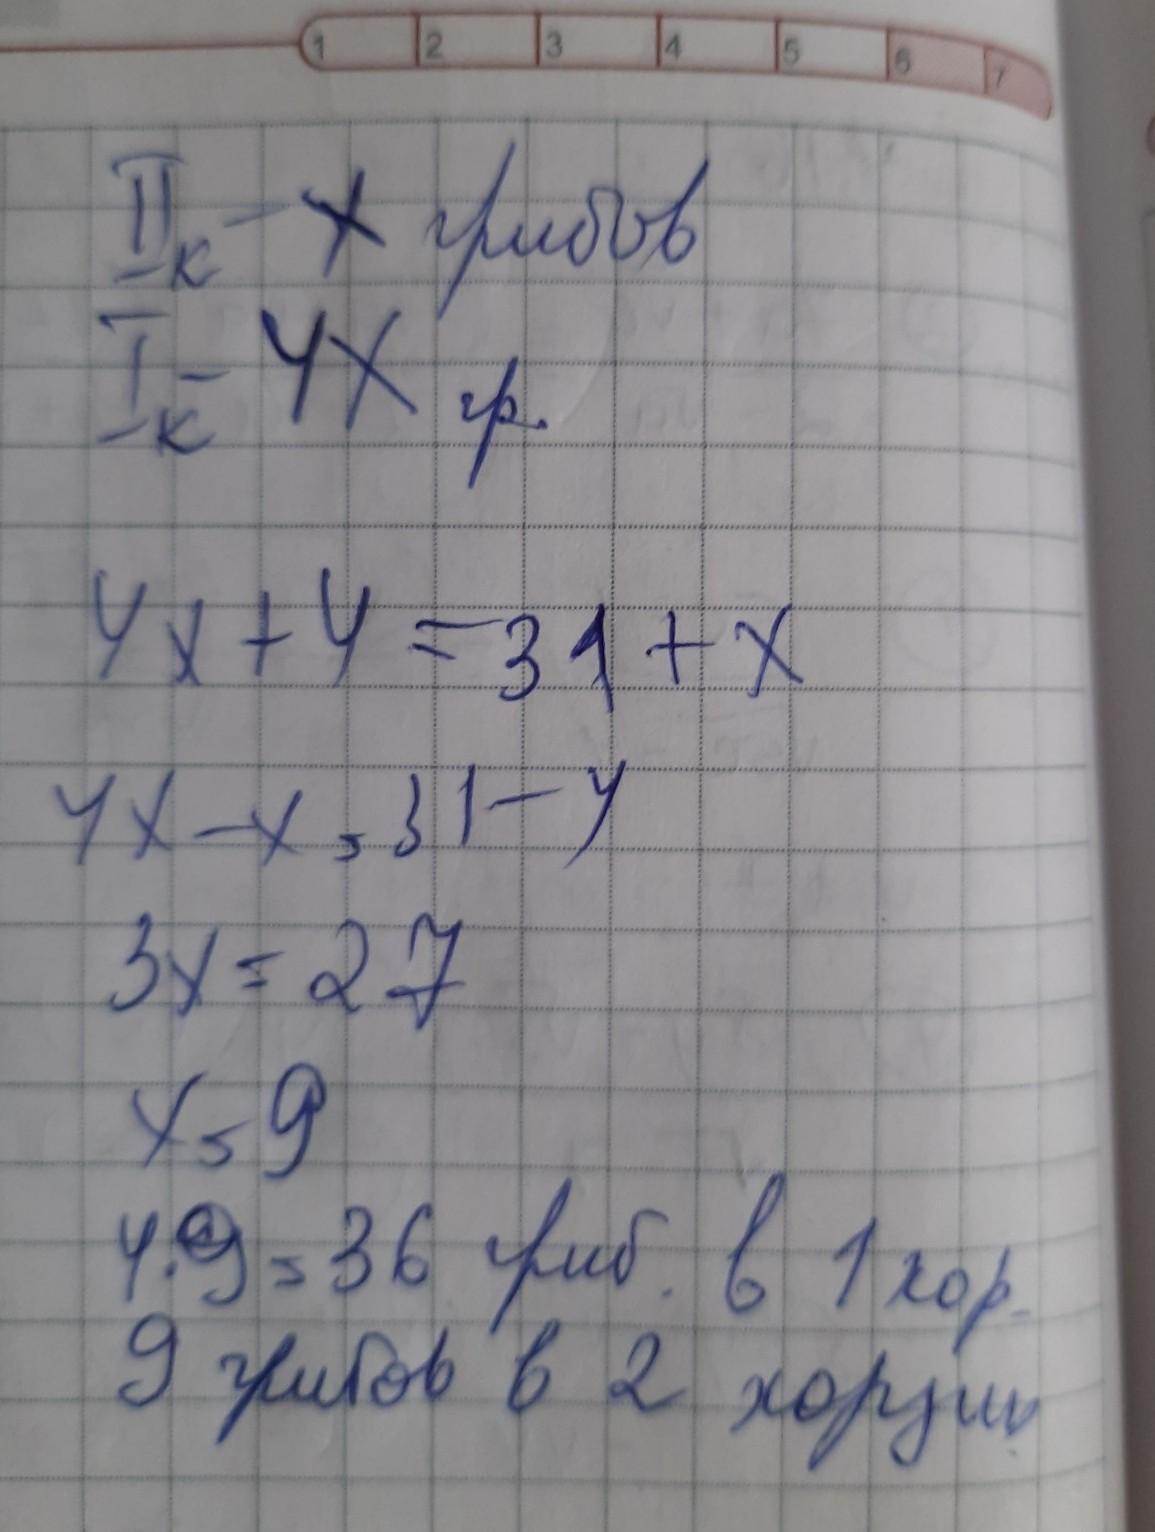 1 2 3 4 5 6 7
II к - x грибов
I к - 4x гр.
4x + 4 = 31 + x
4x - x = 31 - 4
3x = 27
x = 9
4·9 = 36 гриб. в 1 кор.
9 грибов в 2 корзин